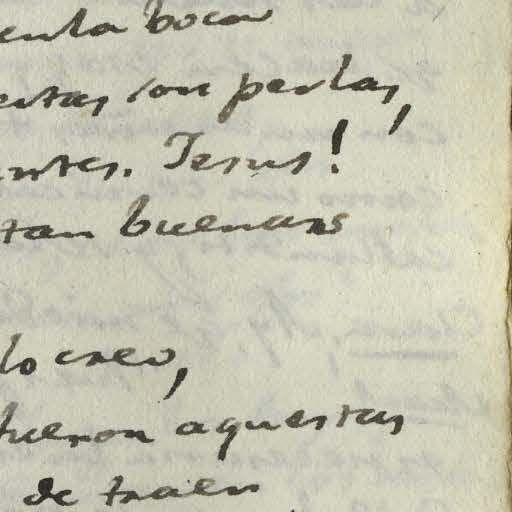 en la boca
estas son perlas,
entes. Jesus!
tan buenas
lo creo,
fueron aquestas
de traer